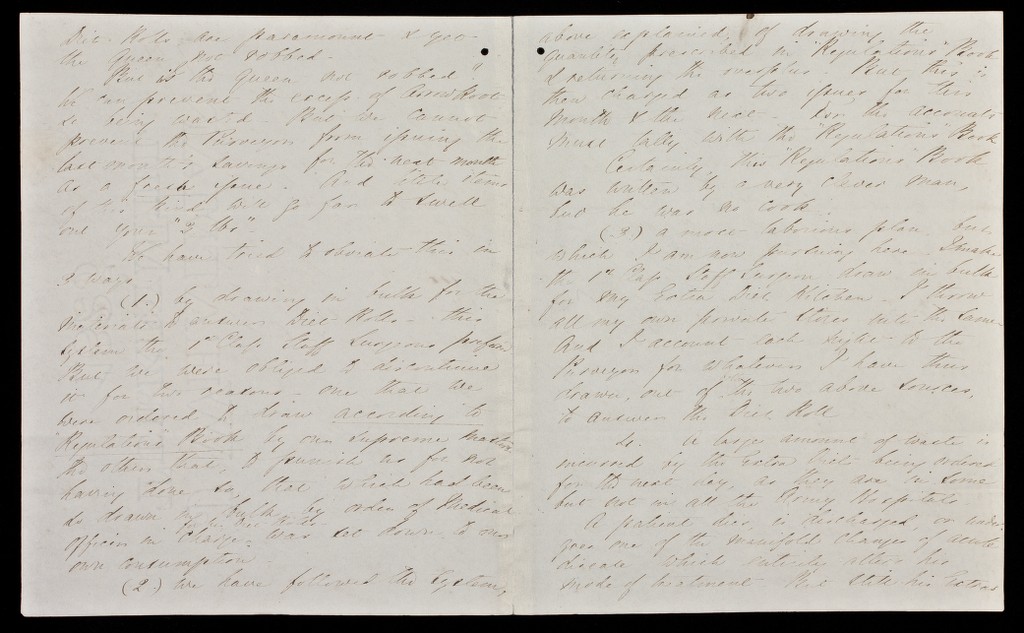 Diet Rolls are paramount & yet
the Queen not robbed.
But is the Queen not robbed?
We can prevent the excess of Arrow Root
so being wasted. But we cannot
prevent the Purveyor from issuing the
last month's savings for the next month
as a fresh issue. And little items
of this kind will go far to swell
out your "3 lbs".
We have tried to obviate this in
3 ways.
(1.) by drawing in bulk for the
materials to answer Diet Rolls. This
system the 1st Class Staff Surgeons prefer
But we were obliged to discontinue
it for two reasons. one that we
were ordered to draw according to
Regulations Book by our supreme Master
the other that, to punish us for not
having done so, that which had been
so drawn in bulk by order of Medical
Officer in Charge was set down to our
own consumption.
(2.) We have followed the system,
above explained, of drawing the
quantity prescribed in "Regulations" Book
& returning the surplus. But this is
then charged as two issues for this
month & the next. For the accounts
must tally with the "Regulations" Book
Certainly, this "Regulations" Book
was written by a very clever man,
but he was no cook.
(3.) a more laborious plan but
which I am now pursuing here. I make
the 1st Class Staff Surgeon draw in bulk
for my Extra Diet Kitchen. I throw
all my own private stores into the same
And I account each night to the
Purveyor for whatever I have thus
drawn, out of the two above sources,
to answer the Diet Roll
4. A large amount of waste is
incurred by the Extra Diets being ordered
for the next day, as they are in some
but not in all the Army Hospitals
A patient dies, is discharged, or under-
goes one of the manifold changes of acute
disease which entirely alters his
mode of treatment. Still his Extras